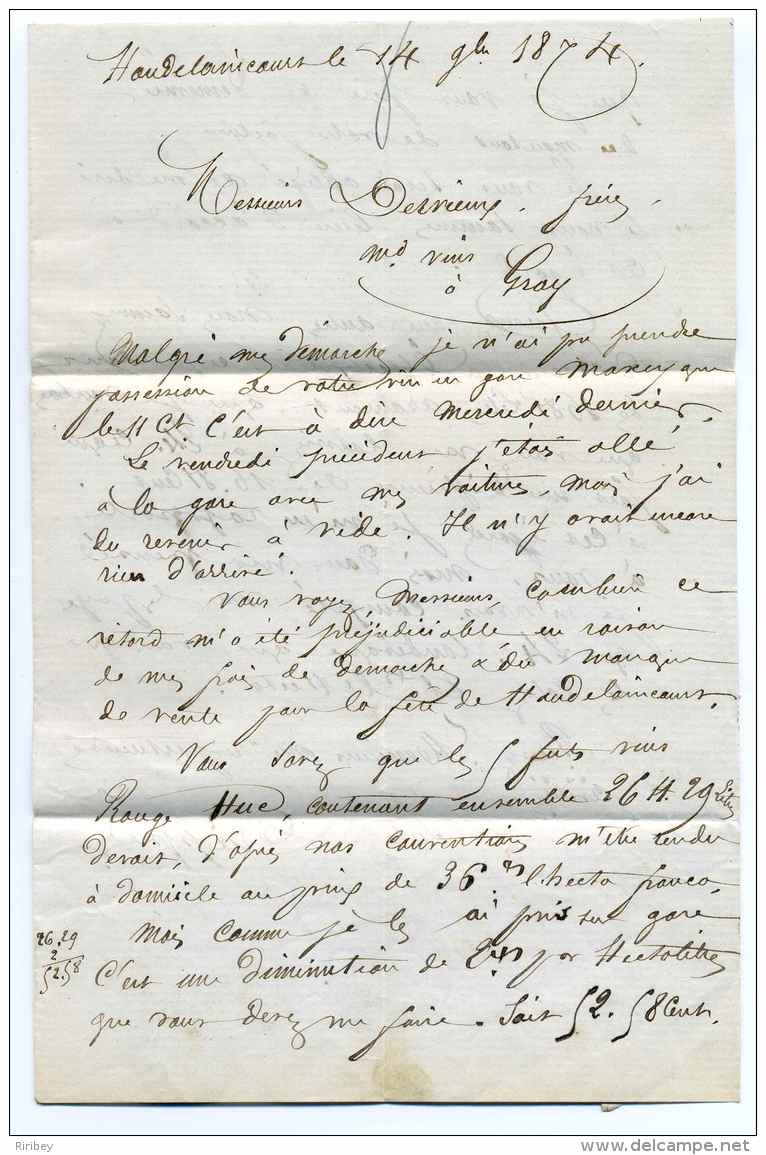 Houdelaincourt le 14 9bre 1874.
Messieurs Desrieux frères
Md vins
à Gray
Malgré mes démarches, je n'ai pu prendre
possession de votre vin en gare Maxey que
le 11 Ct c'est à dire Mercredi dernier.
Le vendredi précédent j'étais allé
à la gare avec mes voitures, mais j'ai
du revenir à vide. Il n'y avait encore
rien d'arrivé.
Vous voyez, Messieurs, combien ce
retard m'a été préjudiciable, en raison
de mes frais de démarche & du manque
de vente pour la fête de Houdelaincourt.
Vous savez que les 5 futs vins
Rouge contenant ensemble 26 H. 29 Litres
devait, d'après nos conventions m'être rendu
à domicile au prix de 36 l'hecto franco,
Mais comme je les ai pris en gare
26.29
2
52.58
C'est une diminution de 2 par Hectolitre
que vous devez me faire. Soit 52.58 Cent.
Riribey
www.delcampe.net